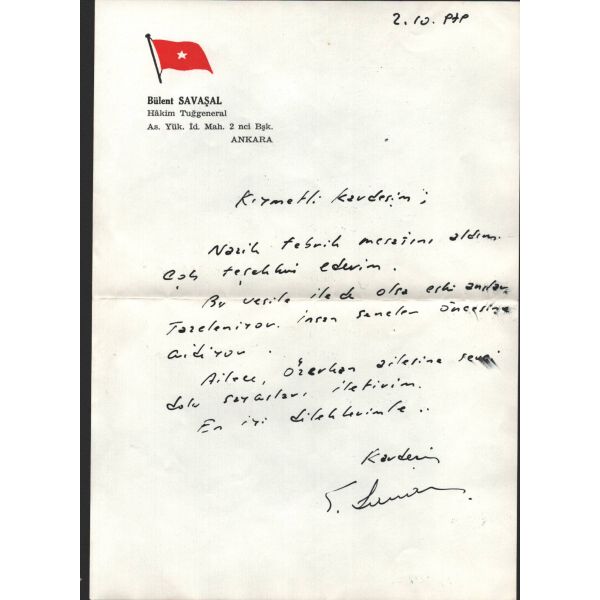 2.10.
Bülent SAVAŞAL
Hâkim Tuğgeneral
As. Yük. İd. Mah. 2 nci Bşk.
ANKARA
Kıymetli Kardeşim;
Nazik tebrik mesajını aldım.
Çok teşekkür ederim.
Bu vesile ile de olsa eski anılar
Tazeleniyor. İnsan seneler öncesine
Gidiyor.
Ailece, Özerhan ailesine sevgi
dolu saygıları iletirim.
En iyi dileklerimle..
Kardeşin